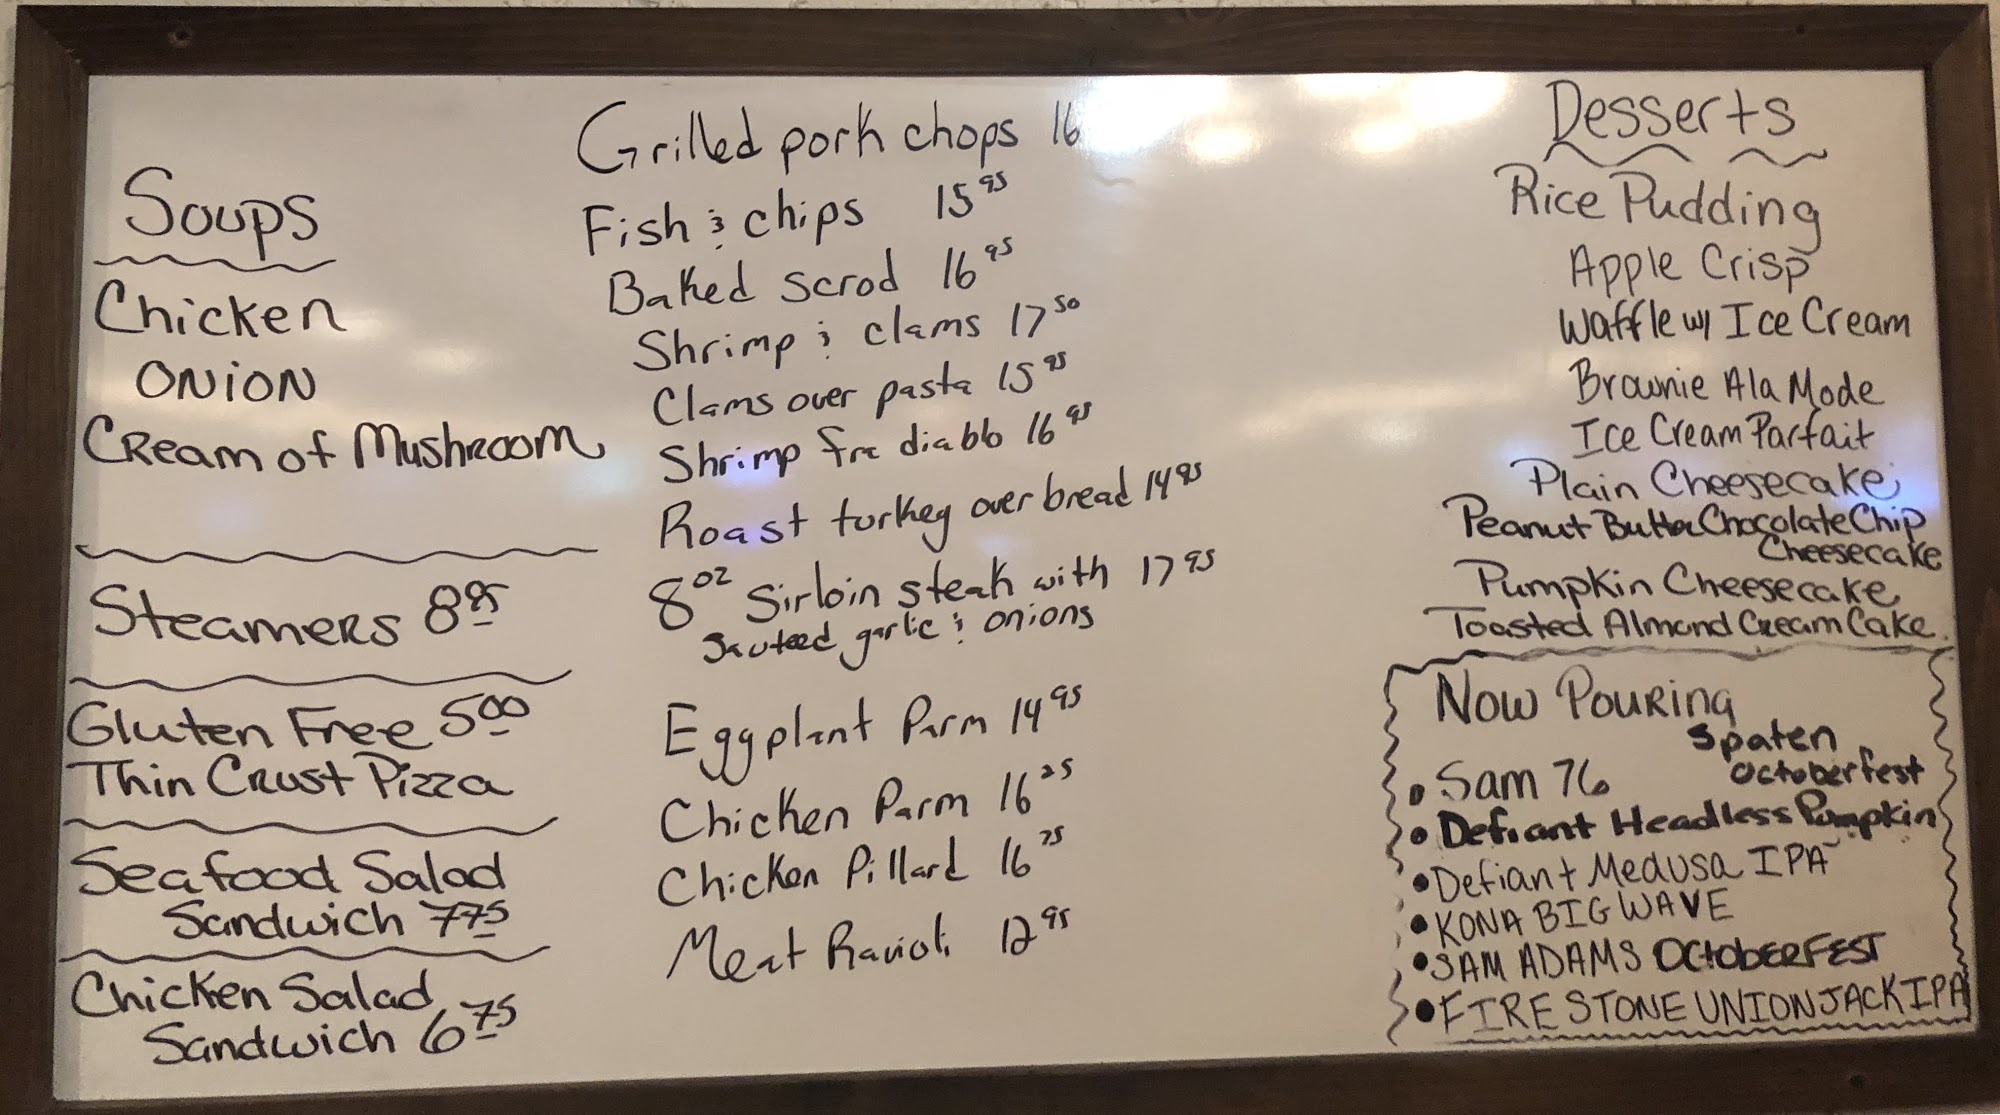 Soups
Chicken
ONiON
Cream of Mushroom
Steamers 8 95
Gluten Free 5 00
Thin Crust Pizza
Seafood Salad
Sandwich 7 75
Chicken Salad
Sandwich 6 75
Grilled pork chops 16
Fish & chips 15 95
Baked scrod 16 95
Shrimp & clams 17 50
Clams over pasta 15 95
Shrimp fra diablo 16 95
Roast turkey over bread 14 95
8 oz Sirloin steak with 17 95
Sauteed garlic & onions
Eggplant Parm 14 95
Chicken Parm 16 25
Chicken Pillard 16 75
Meat Ravioli 12 95
Desserts
Rice Pudding
Apple Crisp
Waffle w/ Ice Cream
Brownie Ala Mode
Ice Cream Parfait
Plain Cheesecake
Peanut Butter Chocolate Chip
Cheesecake
Pumpkin Cheesecake
Toasted Almond Cream Cake
Now Pouring
Spaten
Octoberfest
• Sam 76
• Defiant Headless Pumpkin
• Defiant Medusa IPA
• KONA BIG WAVE
• SAM ADAMS OCTOBERFEST
• FIRE STONE UNION JACK IPA